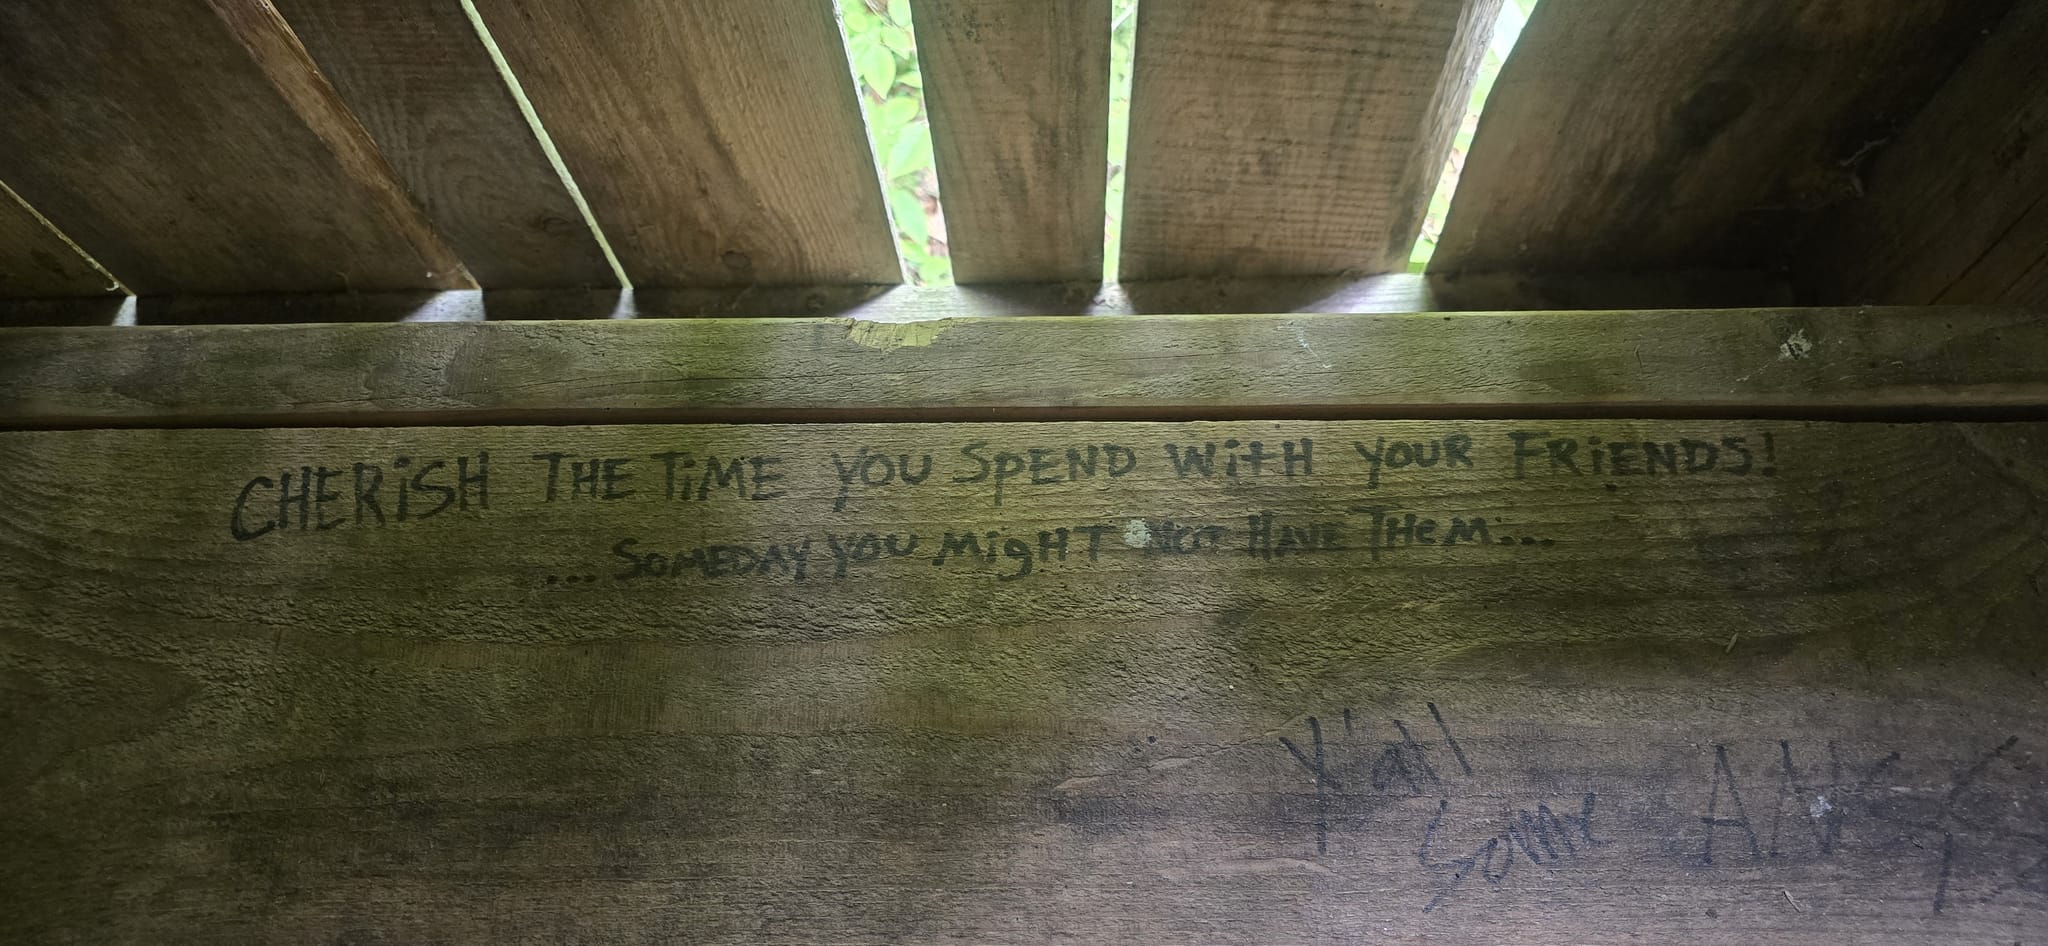 CHERiSH THE TiME YOU SPEND WitH YOUR FRiENDS!
...SOMEDAY YOU MigHT NOT HAVE THEM...
Y'all
Some